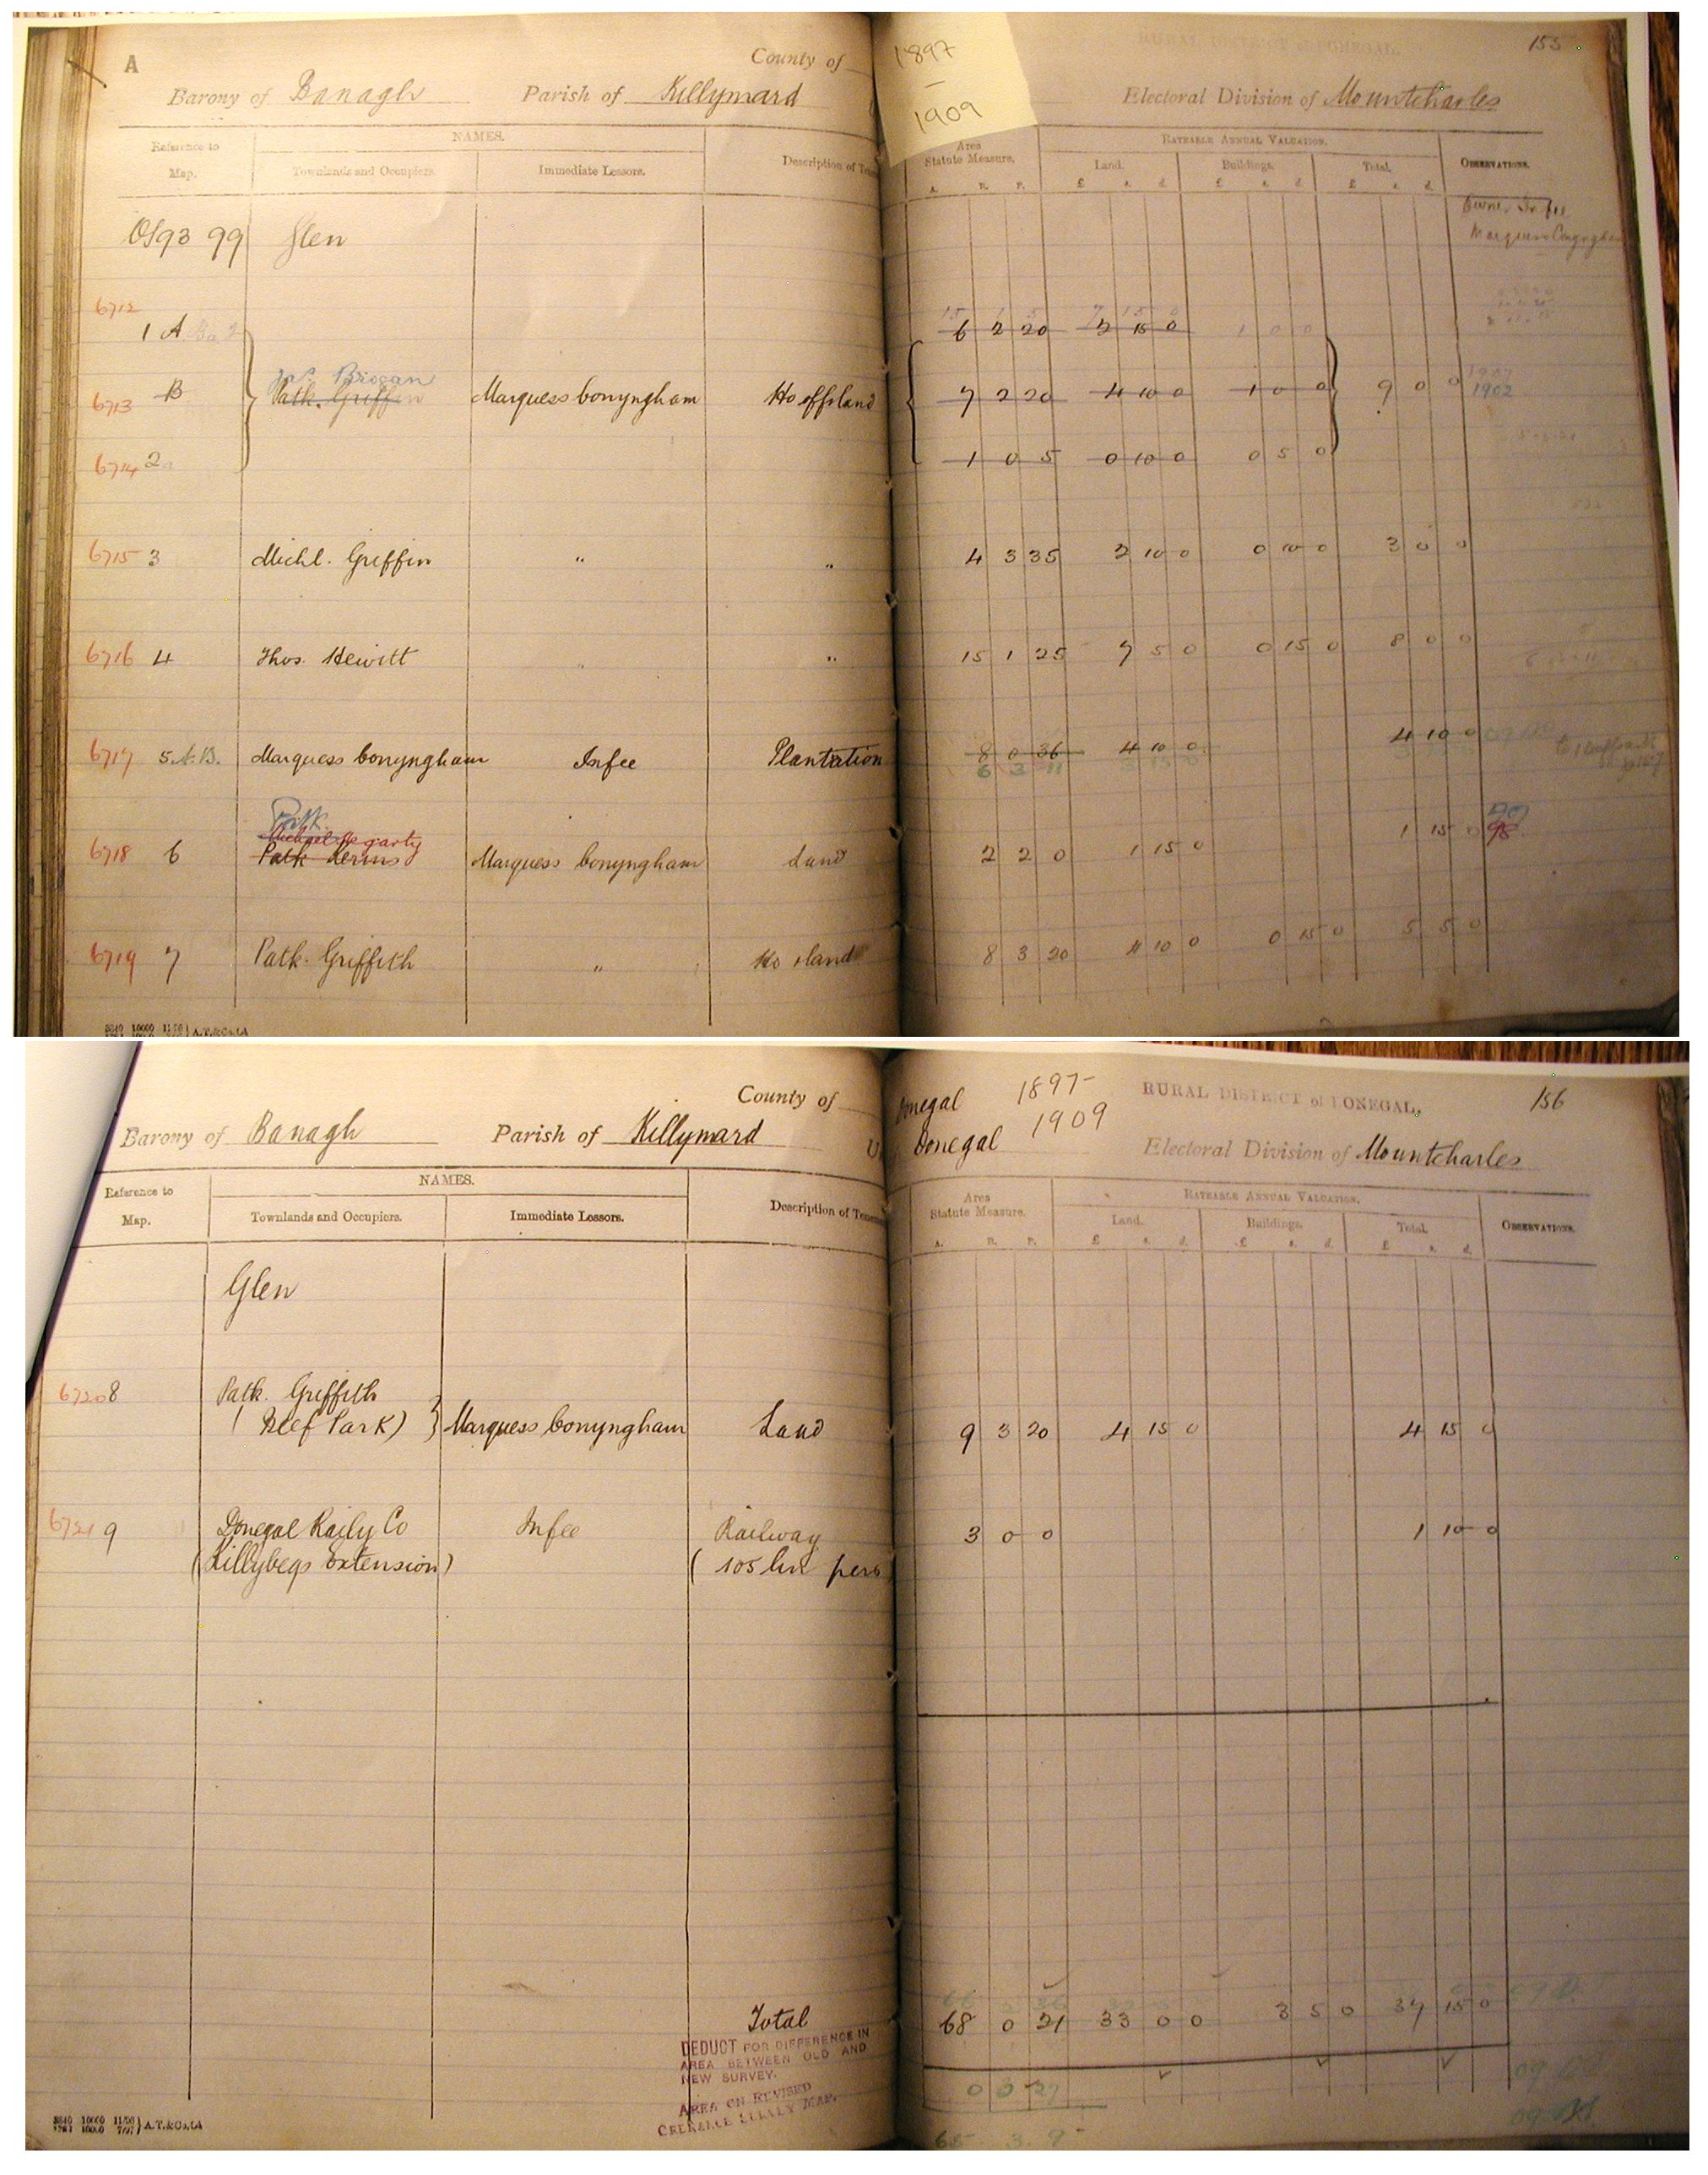 A
County of
1897
-
1909
RURAL DISTRICT of DONEGAL.
155
Barony of Banagh Parish of Killymard
Electoral Division of Mountcharles
Reference to Map.
NAMES.
Townlands and Occupiers.
Immediate Lessors.
Description of Tene
Area Statute Measure.
A. R. P.
RATEABLE ANNUAL VALUATION.
Land.
£ s. d.
Buildings.
£ s. d.
Total.
£ s. d.
OBSERVATIONS.
OS93 99 Glen
Owner Infee
Marquess Conyngham
15 1 5 7 15 0
6712
1 A 6 2 20 3 15 0 1 0 0
Jas. Brogan
6713 B Patk. Griffin Marquess Conyngham Ho off & land 7 2 20 4 10 0 1 0 0 9 0 0 1907
1902
6714 2 1 0 5 0 10 0 0 5 0
6715 3 Michl. Griffin " " 4 3 35 2 10 0 0 10 0 3 0 0
6716 4 Thos. Hewitt " " 15 1 25 7 5 0 0 15 0 8 0 0
6717 5 A.B. Marquess Conyngham Infee Plantation 8 0 36 4 10 0 4 10 0
6 3 11 3 15 0
Patk.
Michael Megarty
6718 6 Patk Kerins Marquess Conyngham Land 2 2 0 1 15 0 1 15 0 98
6719 7 Patk. Griffith " Ho & land 8 3 20 4 10 0 0 15 0 5 5 0
A.T.&Co.LA
County of Donegal
1897-
1909
RURAL DISTRICT of DONEGAL.
156
Donegal
Barony of Banagh Parish of Killymard
Electoral Division of Mountcharles
Reference to Map.
NAMES.
Townlands and Occupiers.
Immediate Lessors.
Description of Tenem
Area Statute Measure.
A. R. P.
RATEABLE ANNUAL VALUATION.
Land.
£ s. d.
Buildings.
£ s. d.
Total.
£ s. d.
OBSERVATIONS.
Glen
6720 8 Patk. Griffith
(Beef Park) Marquess Conyngham Land 9 3 20 4 15 0 4 15 0
6721 9 Donegal Raily Co Infee Railway 3 0 0 1 10 0
(Killybegs Extension) (105 lin pers
Total 68 0 21 33 0 0 3 5 0 37 15 0
DEDUCT FOR DIFFERENCE IN
AREA BETWEEN OLD AND
NEW SURVEY.
0 0 27
AREA ON REVISED
ORDNANCE SURVEY MAP.
3 9
3840 10000 11/96
10000 7/97 A.T.&Co.LA